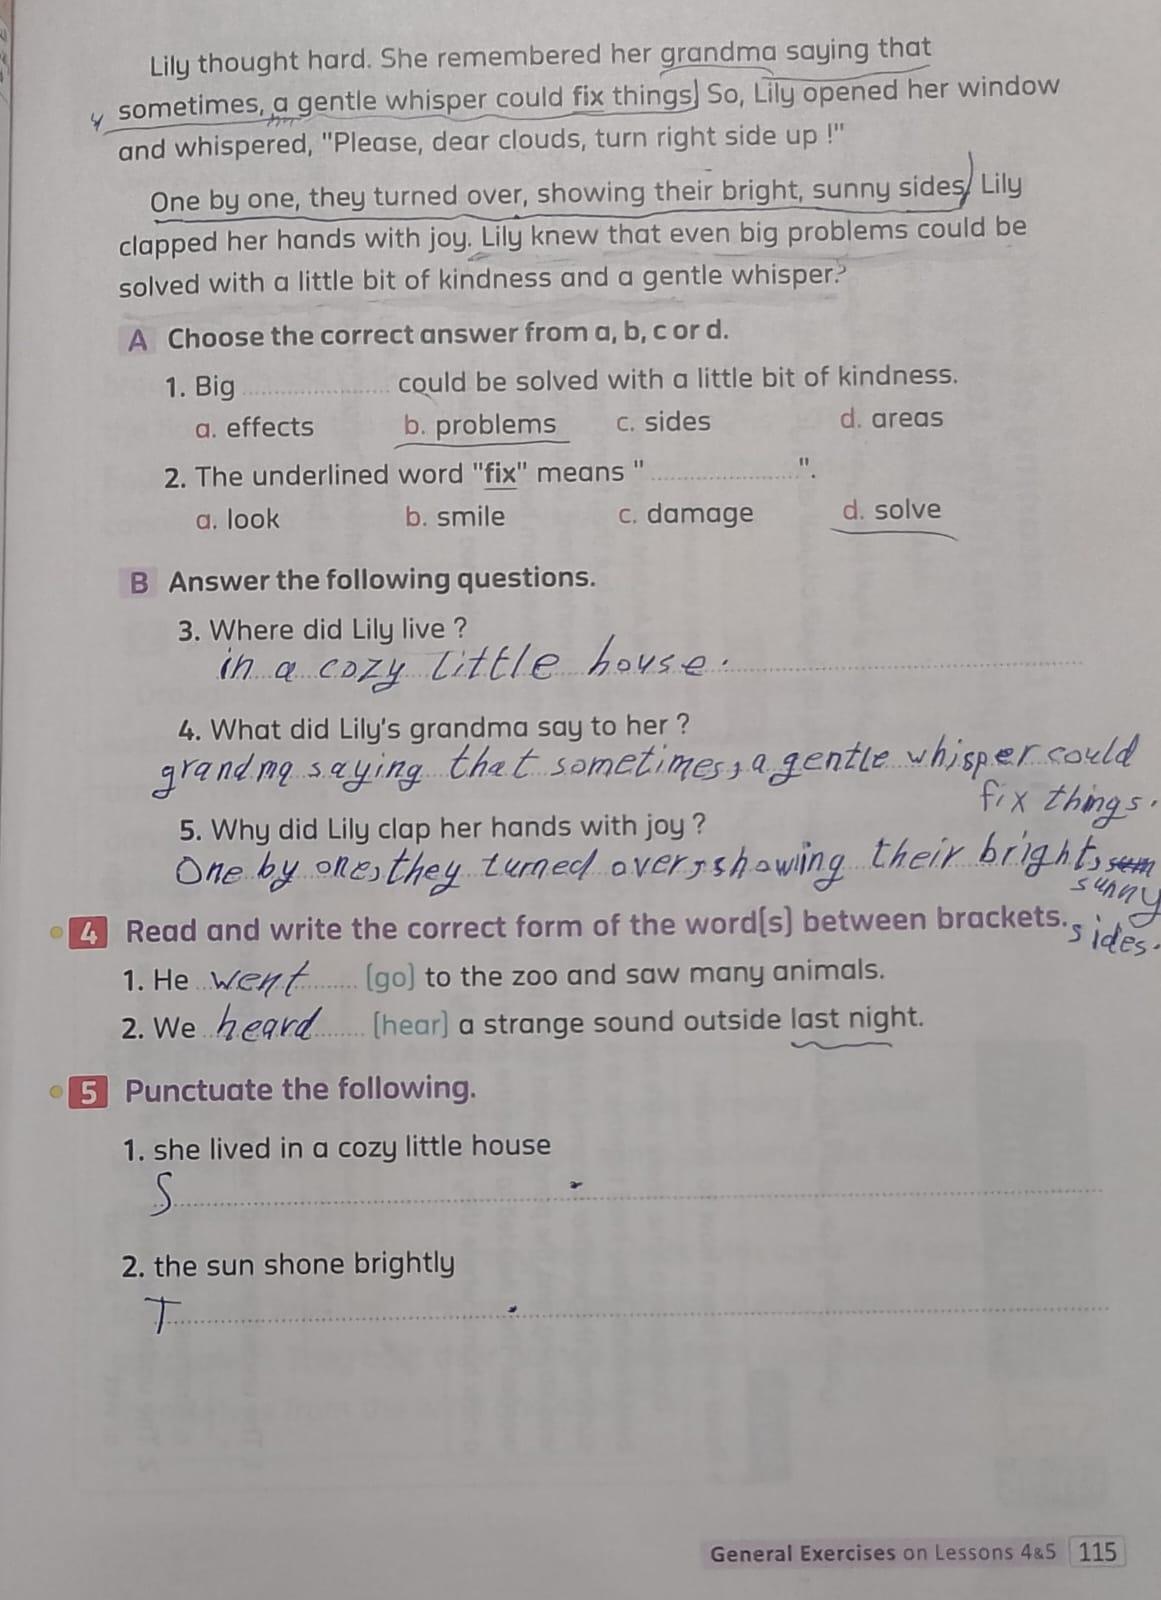 Lily thought hard. She remembered her grandma saying that
sometimes, a gentle whisper could fix things. So, Lily opened her window
and whispered, "Please, dear clouds, turn right side up !"
One by one, they turned over, showing their bright, sunny sides. Lily
clapped her hands with joy. Lily knew that even big problems could be
solved with a little bit of kindness and a gentle whisper.
A Choose the correct answer from a, b, c or d.
1. Big .................... could be solved with a little bit of kindness.
a. effects b. problems c. sides d. areas
2. The underlined word "fix" means " .................... ".
a. look b. smile c. damage d. solve
B Answer the following questions.
3. Where did Lily live ?
in a cozy little house.
4. What did Lily's grandma say to her ?
grandma saying that sometimes, a gentle whisper could
fix things.
5. Why did Lily clap her hands with joy ?
One by one, they turned over, showing their bright,
sunny
sides.
4 Read and write the correct form of the word(s) between brackets.
1. He went (go) to the zoo and saw many animals.
2. We heard (hear) a strange sound outside last night.
5 Punctuate the following.
1. she lived in a cozy little house
S .
2. the sun shone brightly
T .
General Exercises on Lessons 4&5 115